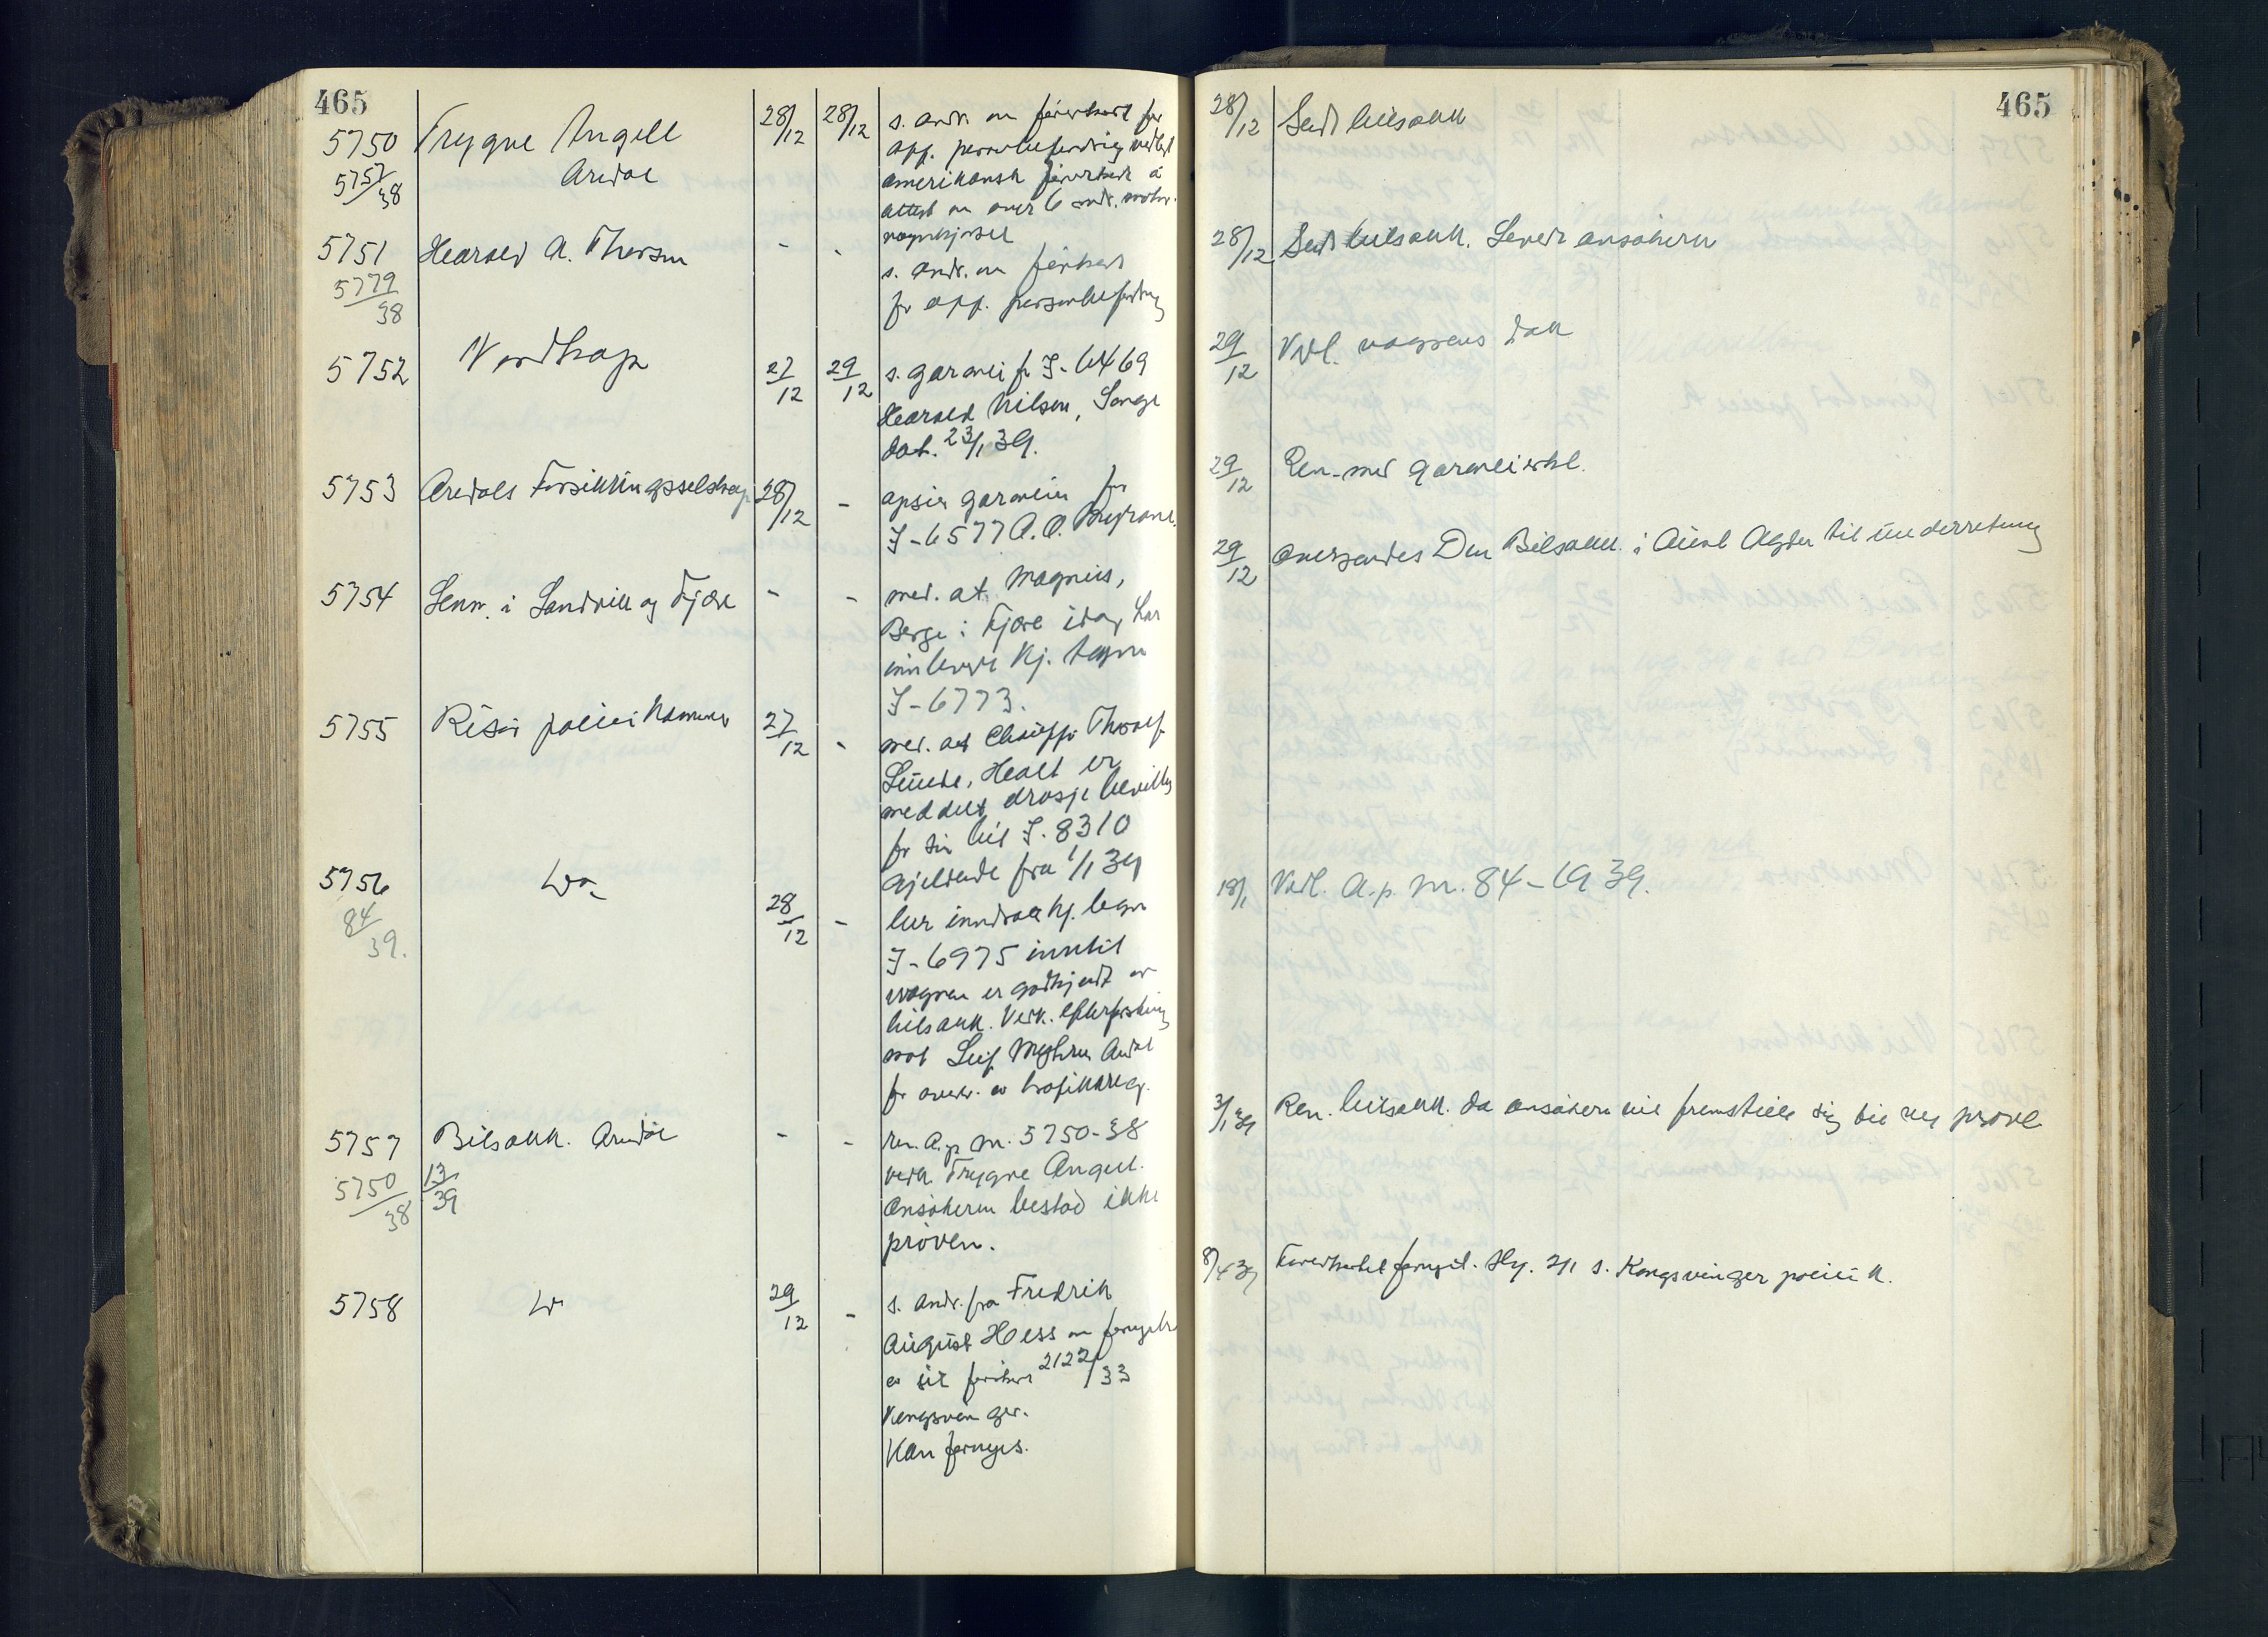 465
5750 Trygve Angell 28/12 28/12 s. andr. om førerkort for
5757/38 Arendal opp. personbefordring vedlagt
amerikansk førerkort å
attest om over 6 mdr. motor-
vognkjørsel
28/12 Sendt bilsakk
465
5751 Harald A. Thorsen - - s. andr. om førerkort
5779/38 for opp. personbefordring
28/12 Sendt bilsakk. Levert ansøkeren
5752 Nordkap 27/12 29/12 s. garanti for I-6469
Harald Nilsen, Songe
dat. 23/1 39.
29/12 Vedl. vognens dok
5753 Arendals Forsikringsselskap 28/12 - opsier garantien for
I-6577 A. O.
29/12 Ren. med garantierkl.
29/12 Oversendes Den Bilsakk. i Aust Agder til underretning
5754 Lensm. i Landvik og Fjære - - med. at Magnus,
Berge i Fjære idag har
innlevert kj. tegn
I-6773.
5755 Risør politikammer 27/12 - med. at Chauffør Thorolf
Lunde, Holt er
meddelt drosjebevilling
for sin bil I-8310
gjeldende fra 1/1 39
5756 Do 28/12 - ber inndradd kj. tegn
84/39. I-6975 inntil
vognen er godkjendt av
bilsakk. Vedr. efterforskning
mot Leif Arendal
for overtr. av trafikkregl.
18/1 Vedl. A.p. nr. 84-1939.
5757 Bilsakk. Arendal - - Ren. A.p nr. 5750-38
5750/38 13/39 vedr. Trygve Angell.
Ansøkeren bestod ikke
prøven.
3/1 39 Ren. bilsakk. da ansøkeren vil fremstille sig til ny prøve
5758 Do 29/12 - s. andr. fra Fredrik
August Hess om fornyelse
av sit førerkort 2122/33
Kongsvinger.
Kan fornyes.
8/4 39 Førerkortet fornyet. Skr. 2/1 s. Kongsvinger politik.